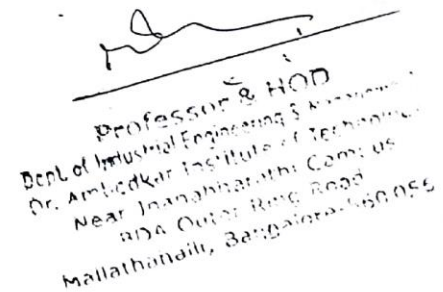 Professor & HOD
Dept. of Industrial Engineering & Management
Dr. Ambedkar Institute of Technology
Near Jnanabharathi Campus
BDA Outer Ring Road
Mallathahalli, Bangalore-560 056